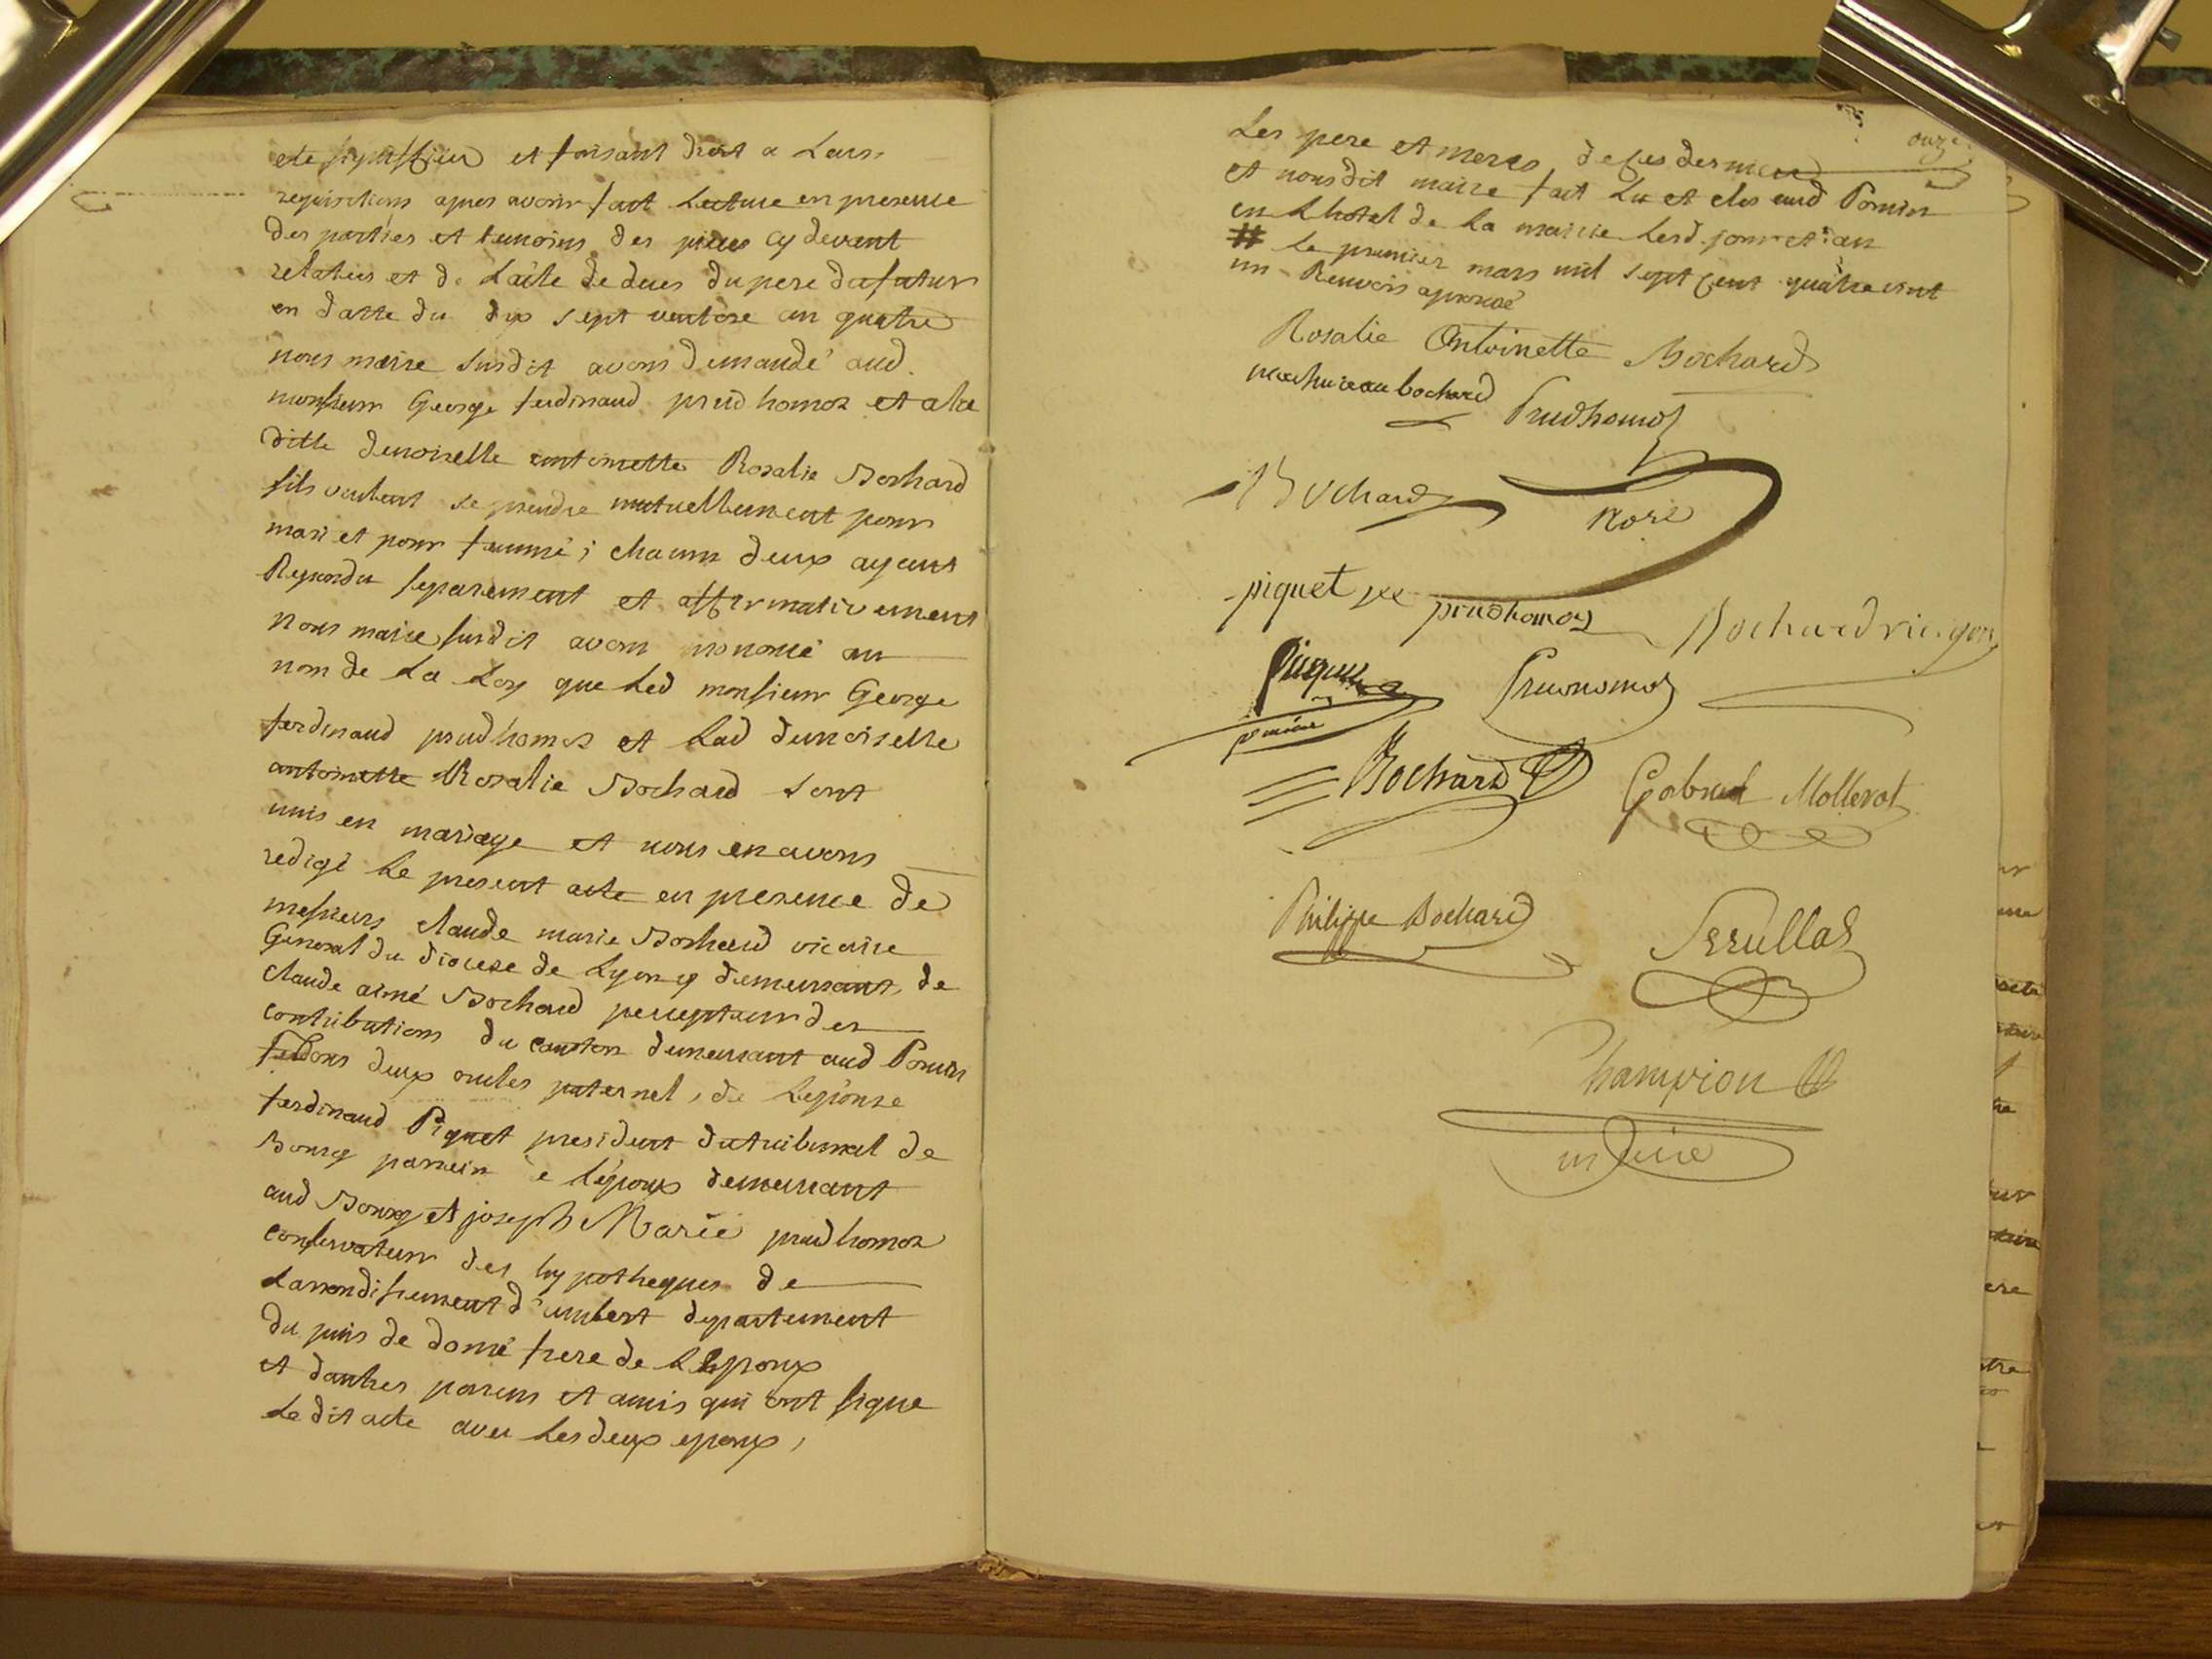 ete signiffiée et faisant droit a Leurs
requisitions apres avoir fait Lecture en presence
des parties et temoins des pieces cy devant
relatées et de Lacte de deces du pere du futur
en datte du dix sept ventose an quatre
nous maire susdit avons demandé aud.
monsieur George ferdinand prudhomoz et a la
ditte demoiselle antoinette Rosalie Bochard
sils veulent se prendre mutuellement pour
mari et pour femme ; chacun deux ayant
Repondu separement et affirmativement
nous maire susdit avons prononcé au
nom de La Loy que Led monsieur George
ferdinand prudhomoz et Lad demoiselle
antoinette Rosalie Bochard sont
unis en mariage et nous en avons
redigé Le present acte en presence de
messieurs claude marie Bochard vicaire
General du diocese de Lyon y demeurant, de
claude aimé Bochard percepteur des
contributions du canton demeurant aud Poncin
tous deux oncles paternel, de Lepouse
ferdinand Piquet president du tribunal de
Bourg parrain de lépoux demeurant
aud Bourg et joseph Marie prudhomoz
conservateur des hypotheques de
Larrondissement d'ambert departement
du puis de dome frere de LEpoux
et dautres parens et amis qui ont signe
Le dit acte avec Les deux epoux,
onze
Les pere et meres de ces derniers
et nous dit maire fait Lu et clos aud Poncin
en Lhotel de La mairie Lesd. jour et an
# Le premier mars mil sept cent quatre vint
un Renvois aprouvé
Rosalie Antoinette Bochard
bochard Prudhomoz
Bochard
piquet prudhomoz Bochard vic. gen.
Prudhomoz
Bochard Gabriel Mollerat
Philippe Bochard Serullas
Champion
maire